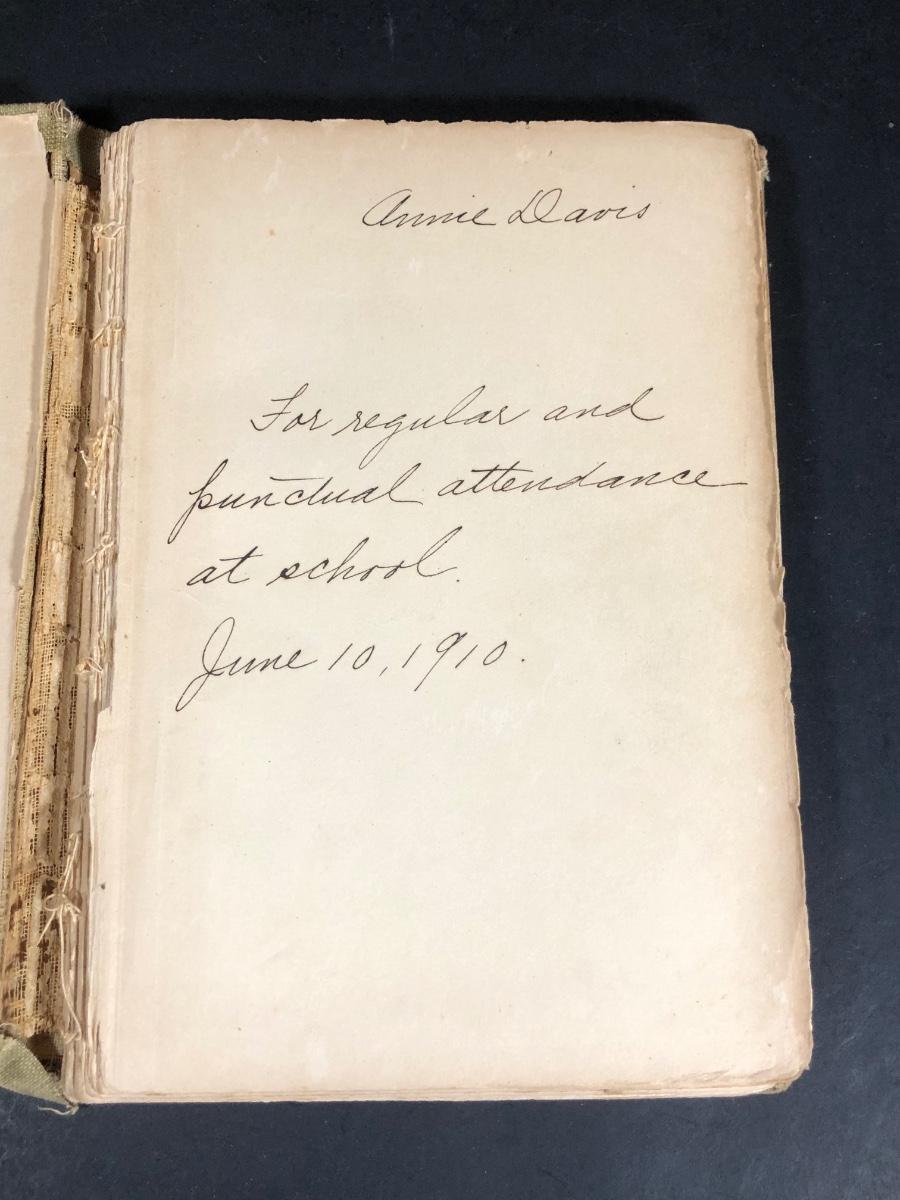 Annie Davis
For regular and
punctual attendance
at school.
June 10, 1910.